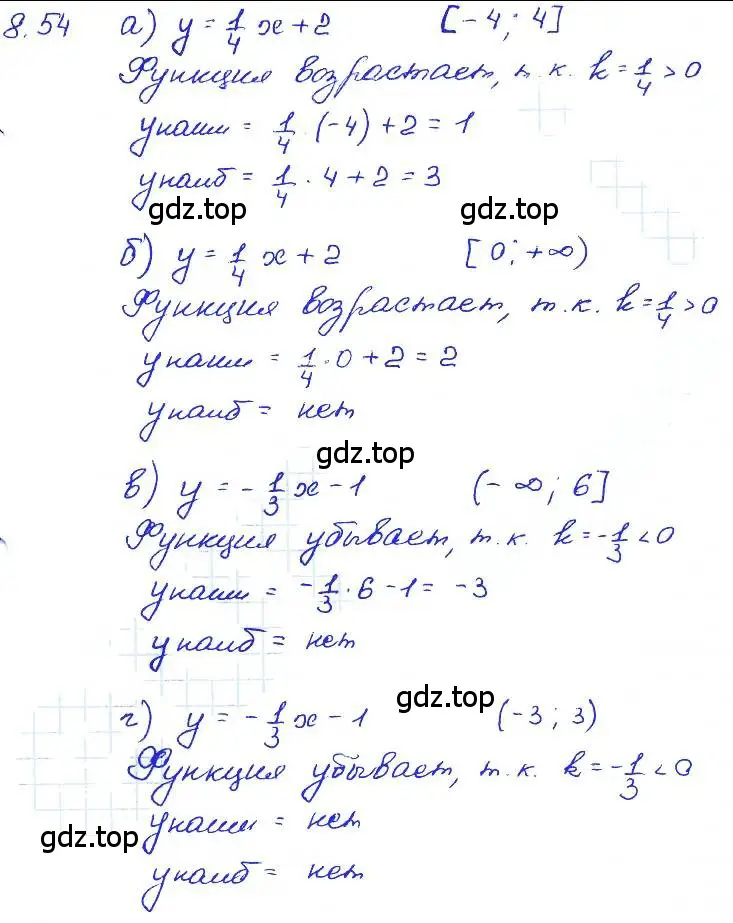 8.54 а) y = 1/4 x + 2 [-4; 4]
Функция возрастает, т.к. k = 1/4 > 0
yнаим = 1/4 · (-4) + 2 = 1
yнаиб = 1/4 · 4 + 2 = 3
gdz.top gdz.top
б) y = 1/4 x + 2 [0; +∞)
Функция возрастает, т.к. k = 1/4 > 0
yнаим = 1/4 · 0 + 2 = 2
yнаиб = нет
gdz.top
в) y = - 1/3 x - 1 (-∞; 6]
Функция убывает, т.к. k = - 1/3 < 0
yнаим = - 1/3 · 6 - 1 = -3
yнаиб = нет
gdz.top
г) y = - 1/3 x - 1 (-3; 3)
Функция убывает, т.к. k = - 1/3 < 0
yнаим = нет
gdz.top
yнаиб = нет